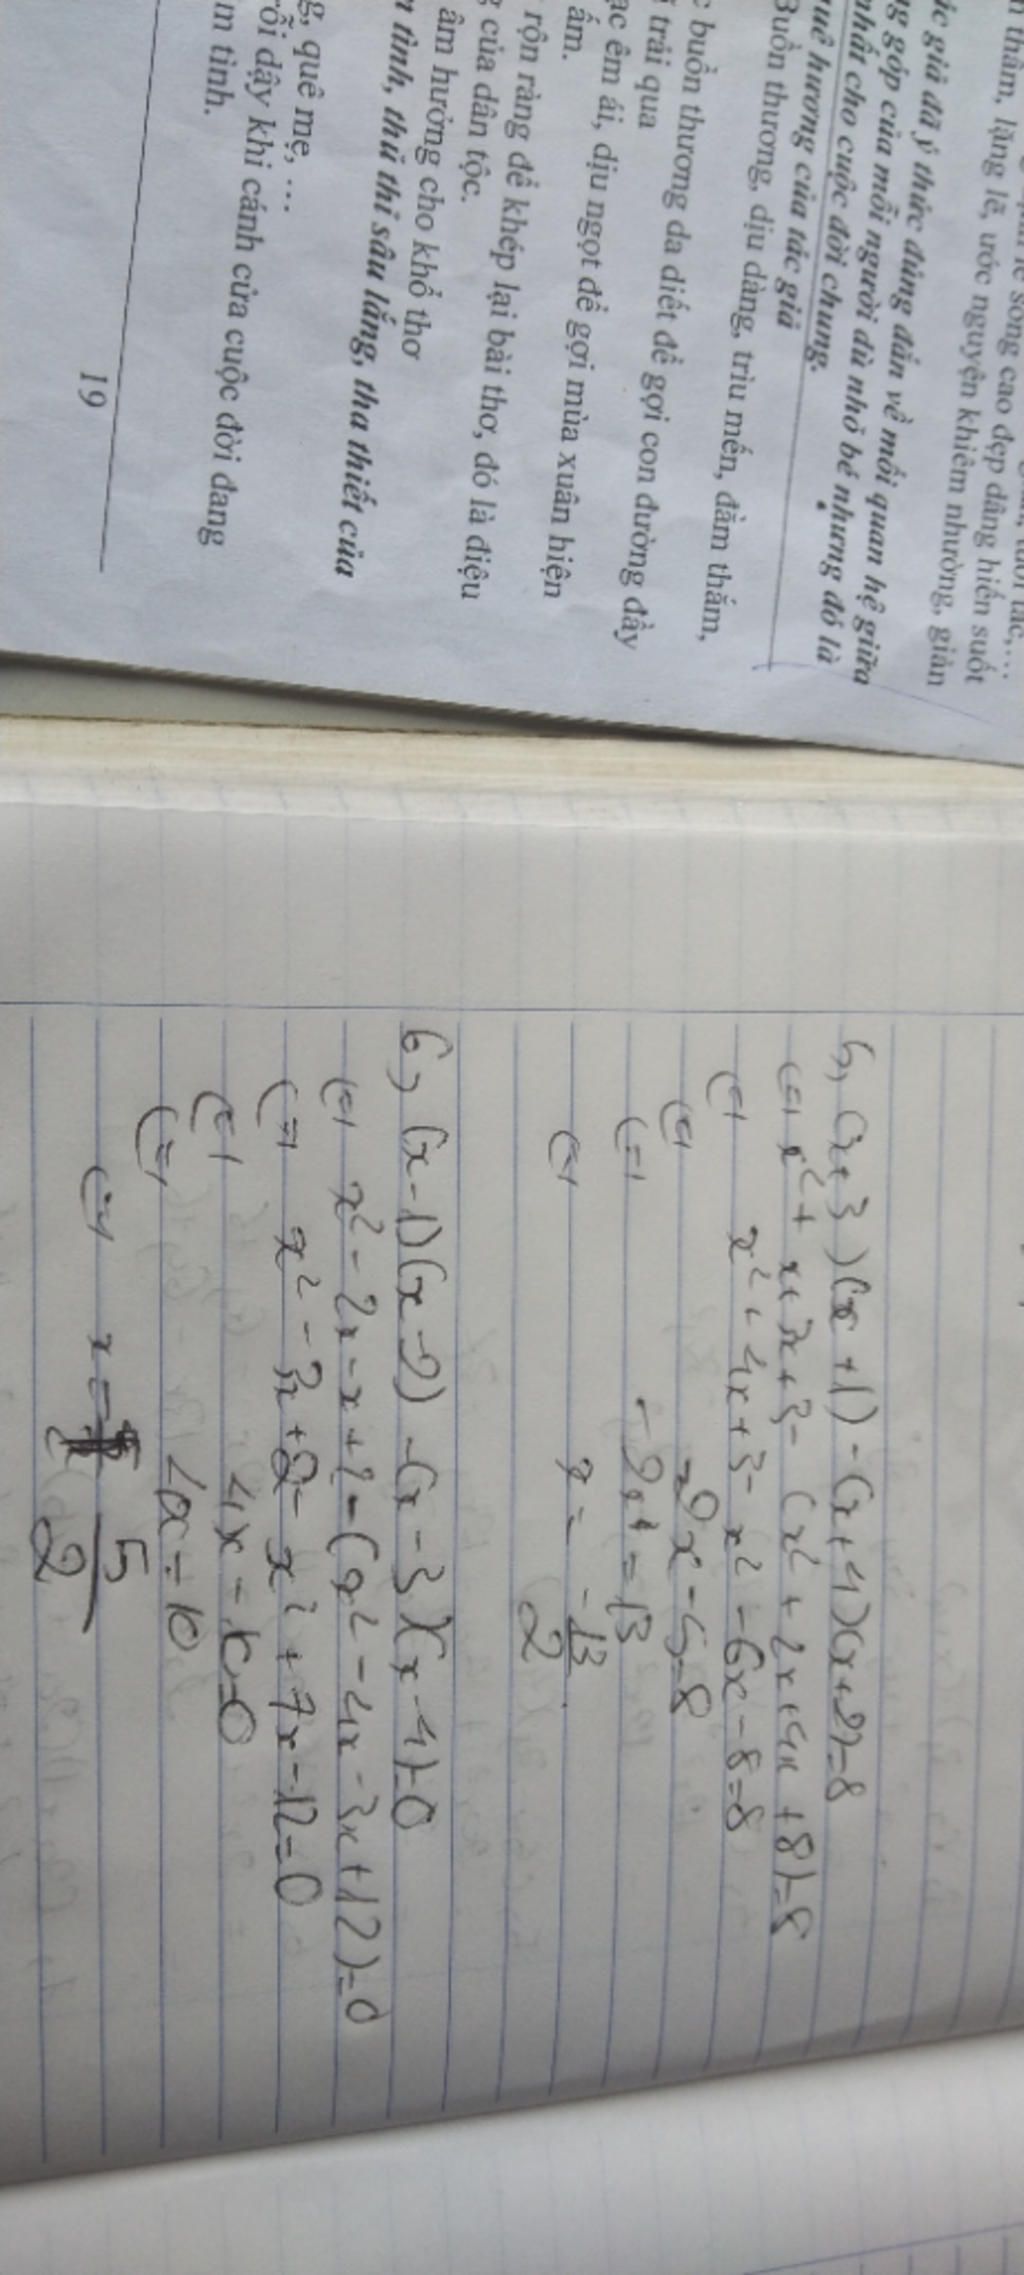 n thầm, lặng lẽ, ước nguyện khiêm nhường, giản
lẽ sống cao đẹp dâng hiến suốt
ác giả đã ý thức đúng đắn về mối quan hệ giữa
ng góp của mỗi người dù nhỏ bé nhưng đó là
nhất cho cuộc đời chung.
quê hương của tác giả
Buồn thương, dịu dàng, trìu mến, đằm thắm,
c buồn thương da diết để gợi con đường đầy
i trải qua
ạc êm ái, dịu ngọt để gợi mùa xuân hiện
ấm.
rộn ràng để khép lại bài thơ, đó là điệu
g của dân tộc.
âm hưởng cho khổ thơ
n tình, thủ thỉ sâu lắng, tha thiết của
g, quê mẹ, ...
rỗi dậy khi cánh cửa cuộc đời đang
m tình.
19
5, (x+3)(x+1) - (x+4)(x+2)=8
(=) x² + x+3x+3- (x² + 2x+4x +8)=8
(=) x² + 4x+3- x² -6x -8=8
(=) -2x -5=8
(=) -2x = 13
(=) x = -13/2.
6, (x-1)(x-2) -(x-3)(x-4)=0
(=) x² - 2x -x +2 -(x² -4x -3x+12)=0
(=) x² - 3x +2- x² + 7x -12=0
(=) 4x -10=0
(=) 4x = 10
(=) x = 5/2